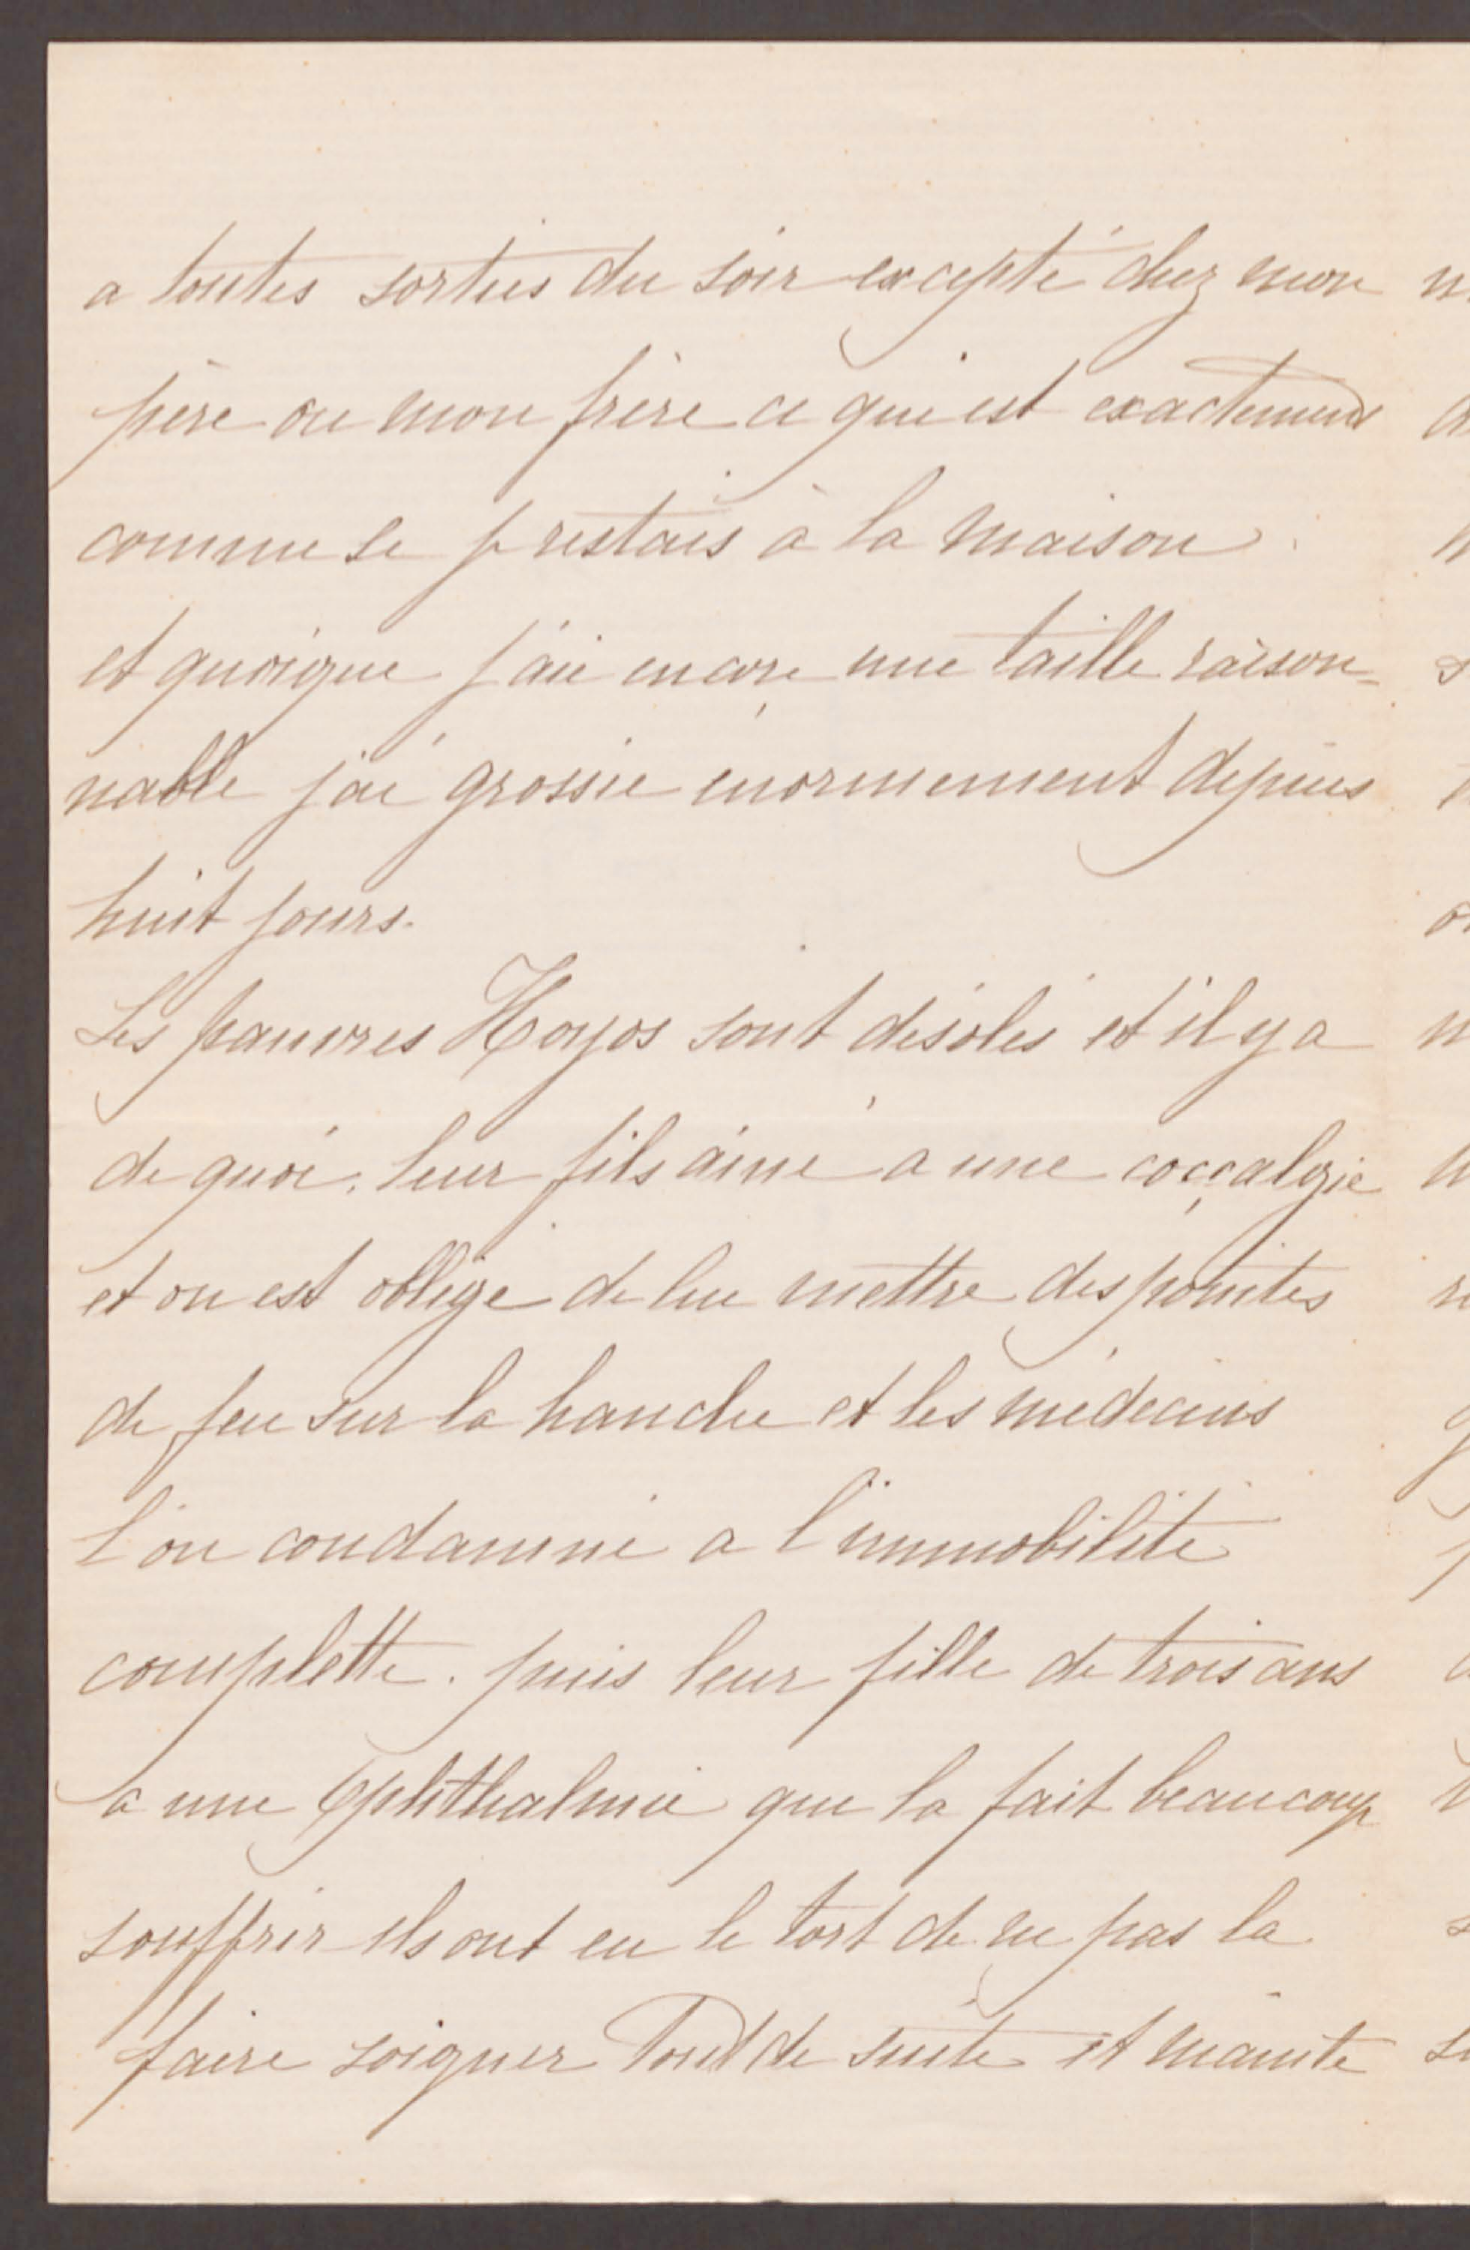 a toutes sorties du soir excepté chez mon
père ou mon frère ce qui est exactement
comme se je restais à la maison.
et quoique j'aie encore une taille raison=
nable j'ai grossie enormement depuis
huit jours.
Les pauvres Hoyos sont désolés et il y a
de quoi. leur fils ainé a une coçcalgie
et on est obligé de lui mettre des pointes
de feu sur la hanche et les médecins
l'on condamné a l'immobilité
complette. puis leur fille de trois ans
a une Ophthalmie qui la fait beaucoup
souffrir ils ont eu le tort de ne pas la
faire soigner Tout de suite et mainte